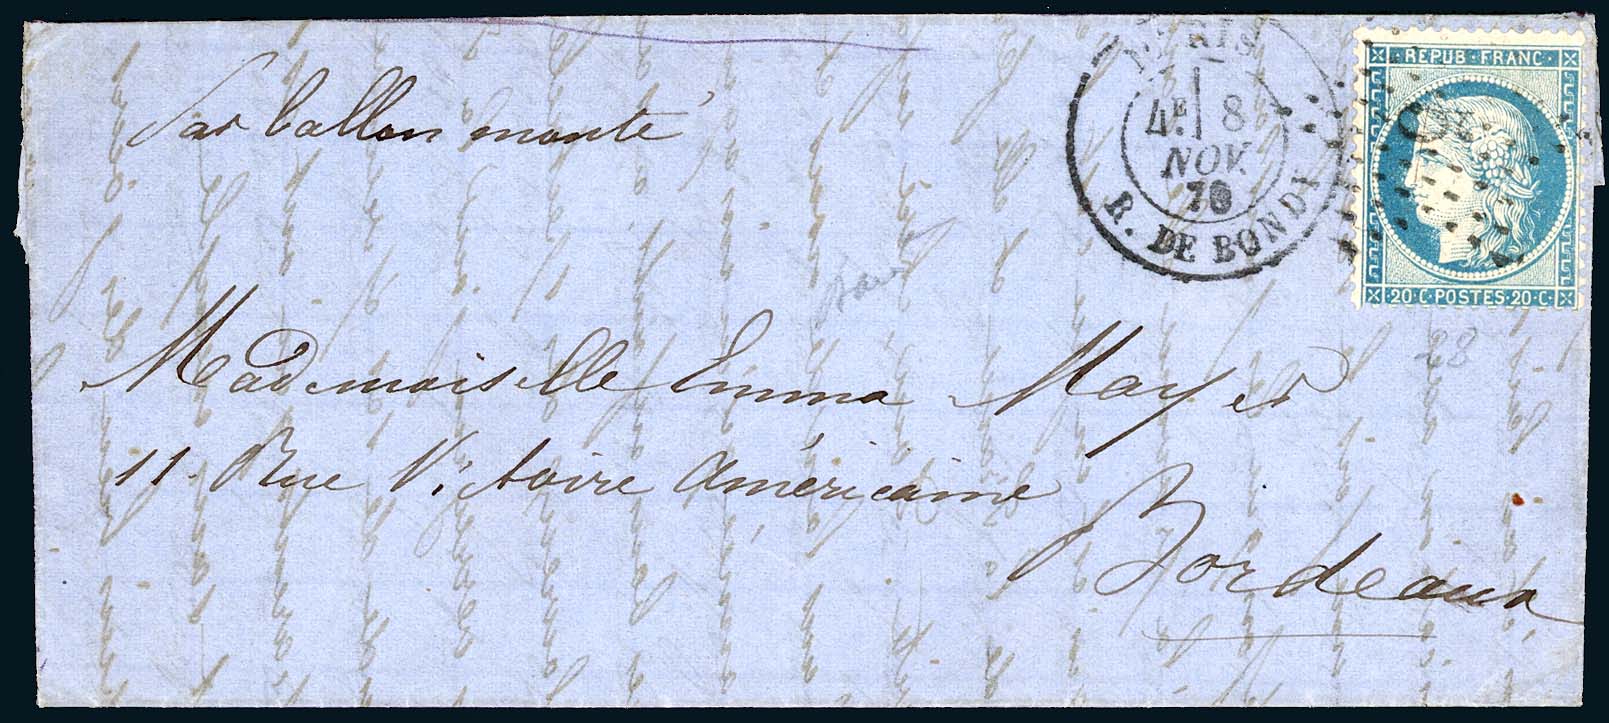 Par ballon monté
PARIS
4E 8
NOV.
70
R. DE BONDY
REPUB · FRANC ·
20 · C · POSTES · 20 · C ·
28
Mademoiselle Emma Mayer
11. Rue Victoire Américaine
Bordeaux